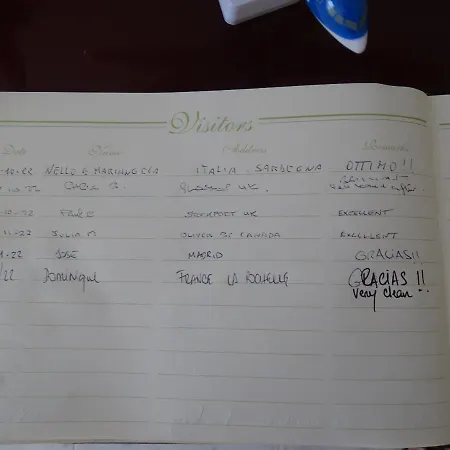 Visitors
Date Name Address Remarks
10-22 NELLO E MARIANGELA ITALIA - SARDEGNA OTTIMO!!
10.22 UK.
10-22 STOCKPORT UK EXCELLENT
11-22 JULIA M OLIVER BC CANADA EXCELLENT
1-22 JOSÉ MADRID GRACIAS!!
22 DOMINIQUE FRANCE LA ROCHELLE GRACIAS !!
very clean